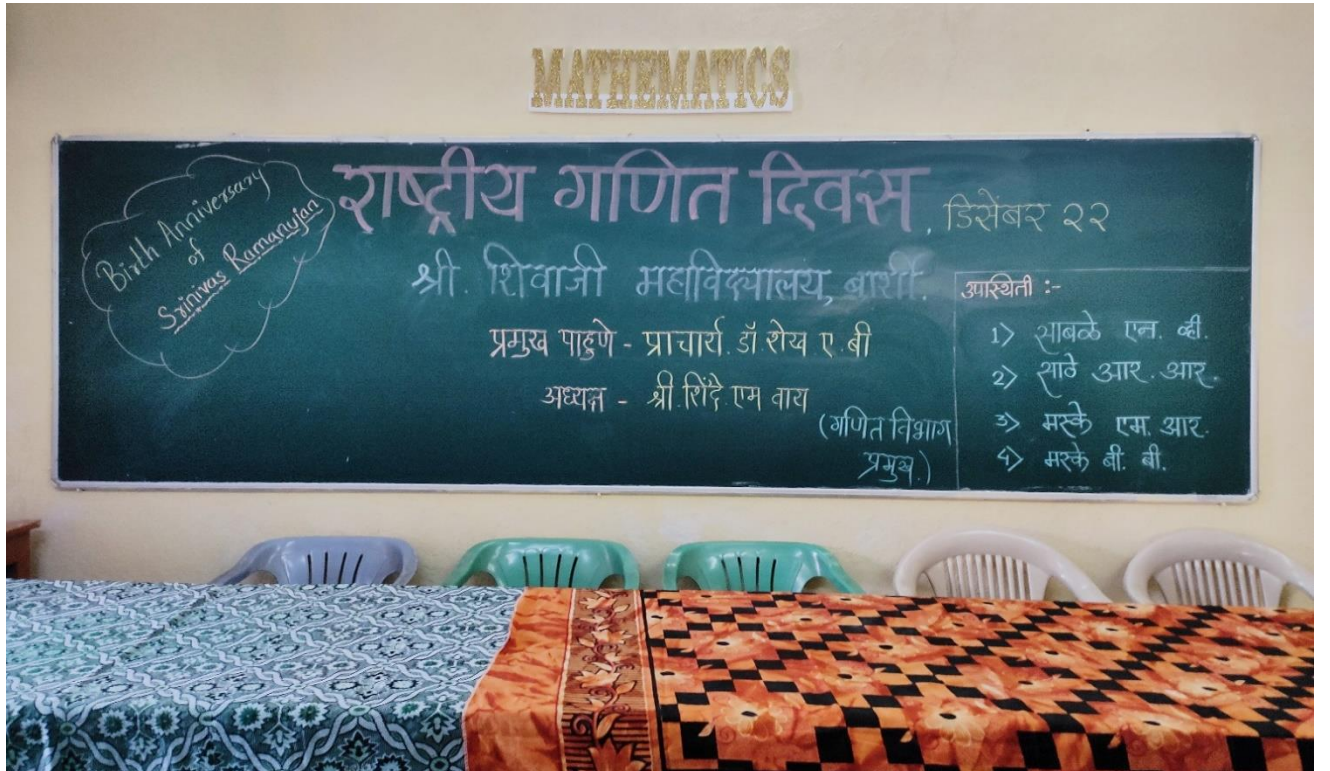 MATHEMATICS
Birth Anniversary
of
Srinivas Ramanujan
राष्ट्रीय गणित दिवस, डिसेंबर २२
श्री. शिवाजी महाविद्यालय, बार्शी.
प्रमुख पाहुणे - प्राचार्य. डॉ. शेख ए. बी
अध्यक्ष - श्री. शिंदे. एम वाय
(गणित विभाग
प्रमुख.)
उपस्थिती :-
1> साबळे एन. व्ही.
2> सावे आर. आर.
3> मस्के एम. आर.
4> मस्के बी. बी.